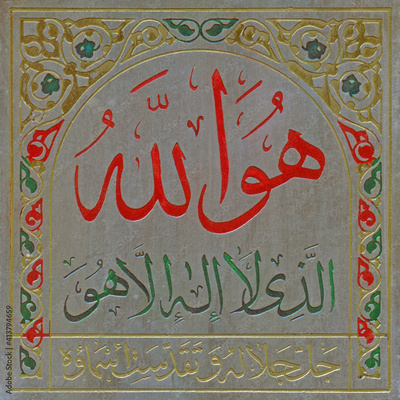 هُوَ اللَّهُ
الَّذِي لَا إِلٰهَ إِلَّا هُوَ
جَلَّ جَلَالُهُ وَتَقَدَّسَتْ أَسْمَاؤُهُ
Adobe Stock | #413794659